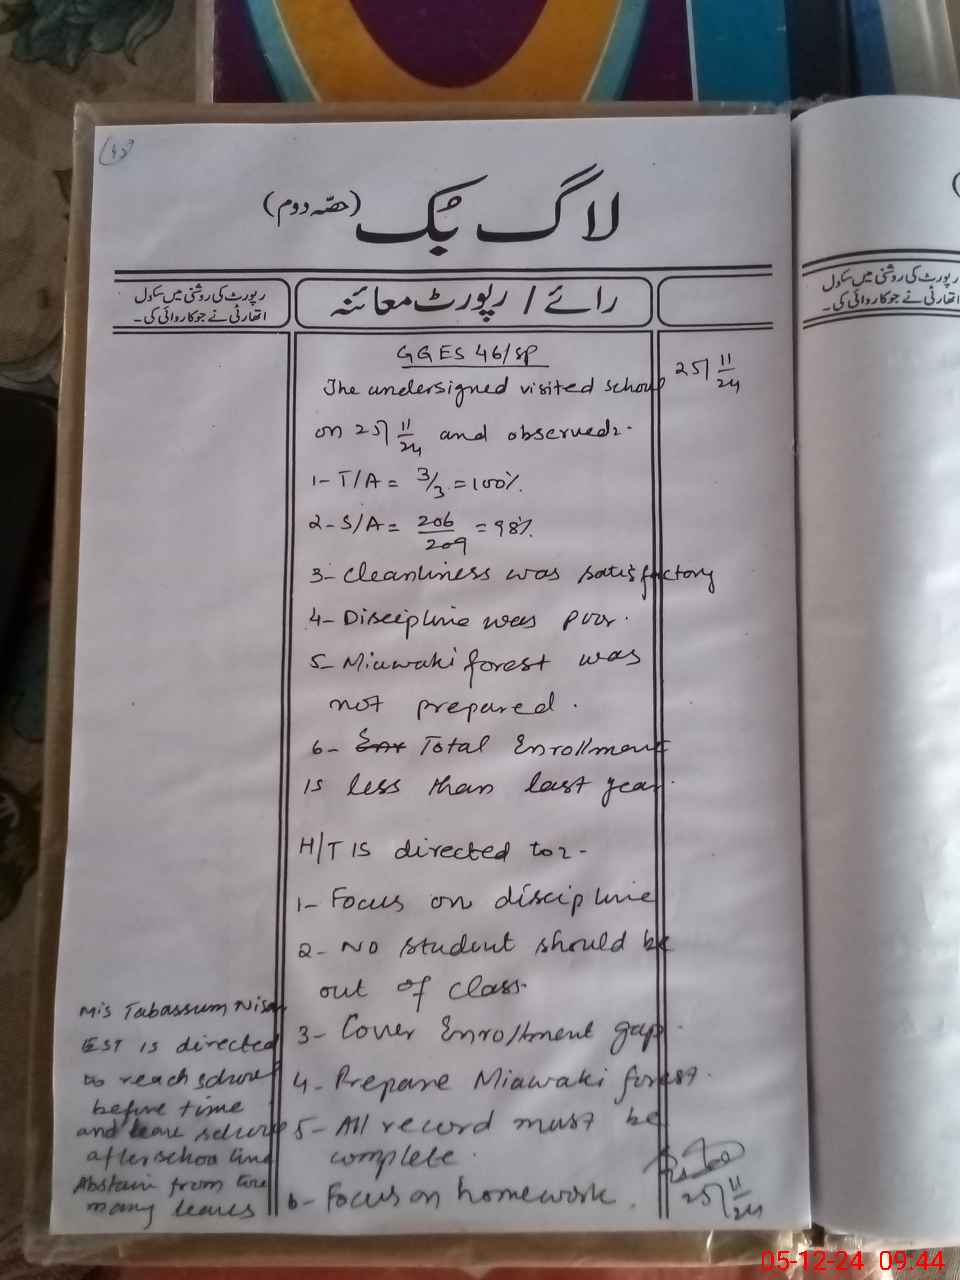 لاگ بُک (حصّہ دوم)
رپورٹ کی روشنی میں سکول
اتھارٹی نے جو کاروائی کی۔
رائے / رپورٹ معائنہ
رپورٹ کی روشنی میں سکول
اتھارٹی نے جو کاروائی کی۔
GGES 46/SP
25/11/24
The undersigned visited school
on 25/11/24 and observed:-
1- T/A = 3/3 = 100%.
2- S/A = 206/209 = 98%.
3- Cleanliness was satisfactory
4- Discipline was poor.
5- Miawaki forest was
not prepared.
6- Total Enrollment
is less than last year.
H/T is directed to:-
1- Focus on discipline
2- No student should be
out of class.
3- Cover Enrollment gap.
4- Prepare Miawaki forest.
5- All record must be
complete.
6- Focus on homework.
Mis Tabassum Nisar
EST is directed
to reach school
before time
and leave school
after school time
Abstain from
many leaves
25/11/24
05-12-24 09:44